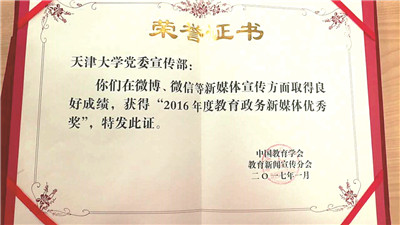 荣誉证书
天津大学党委宣传部：
你们在微博、微信等新媒体宣传方面取得良
好成绩，获得“2016年度教育政务新媒体优秀
奖”，特发此证。
中国教育学会
教育新闻宣传分会
二〇一七年一月